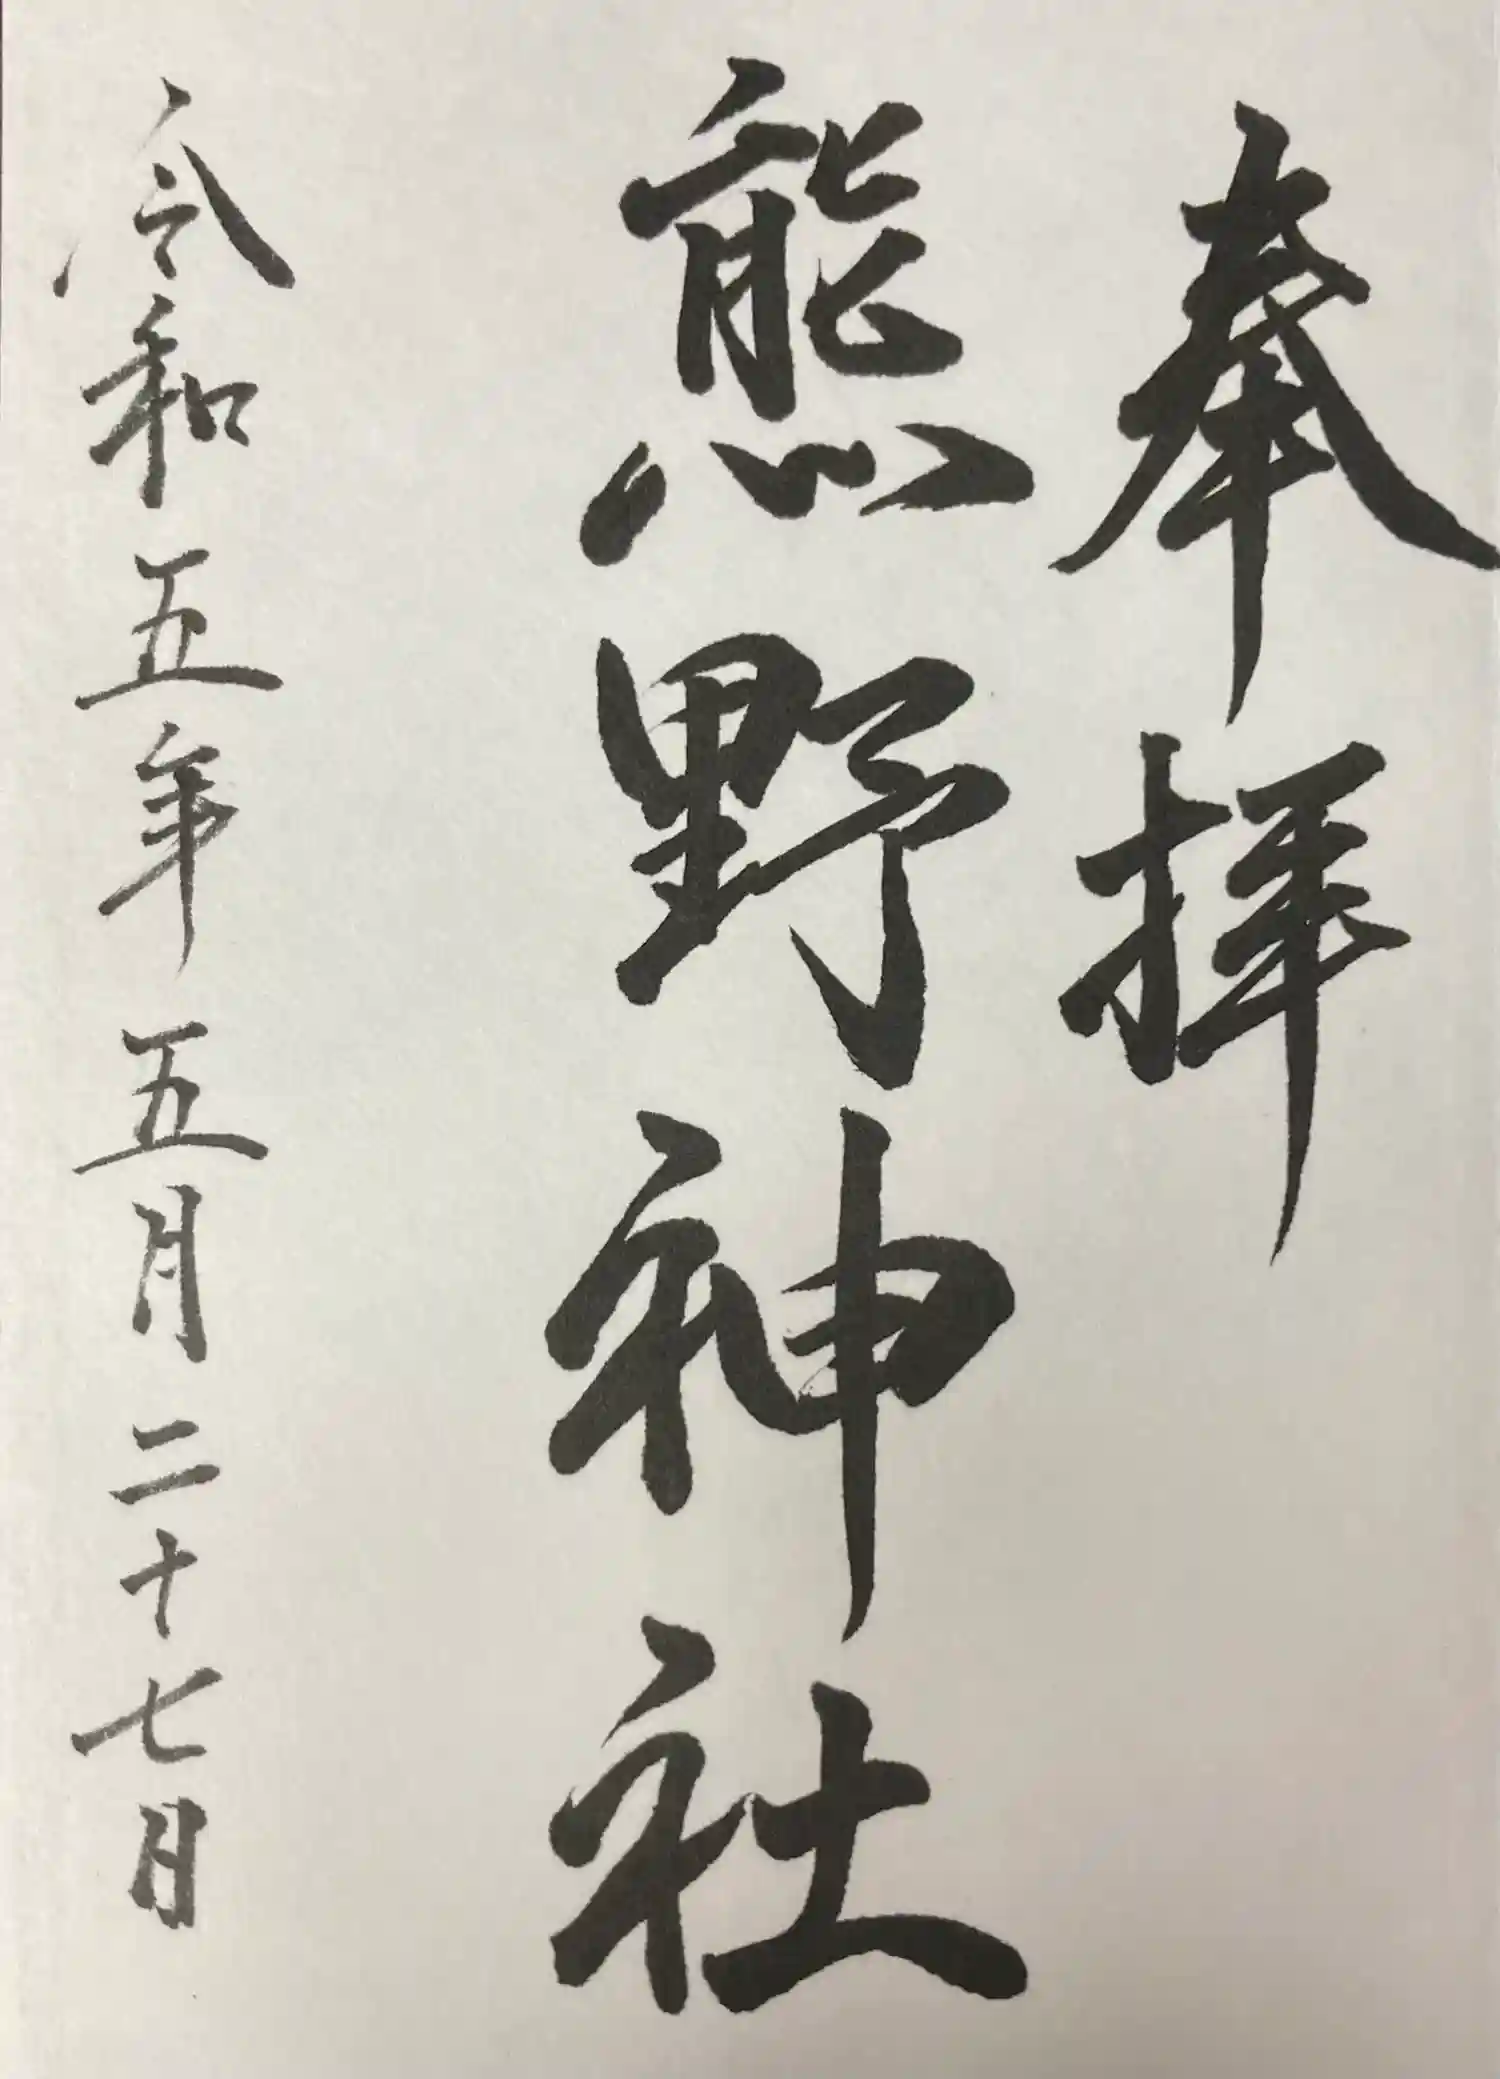 奉拝
熊野神社
令和五年五月二十七日